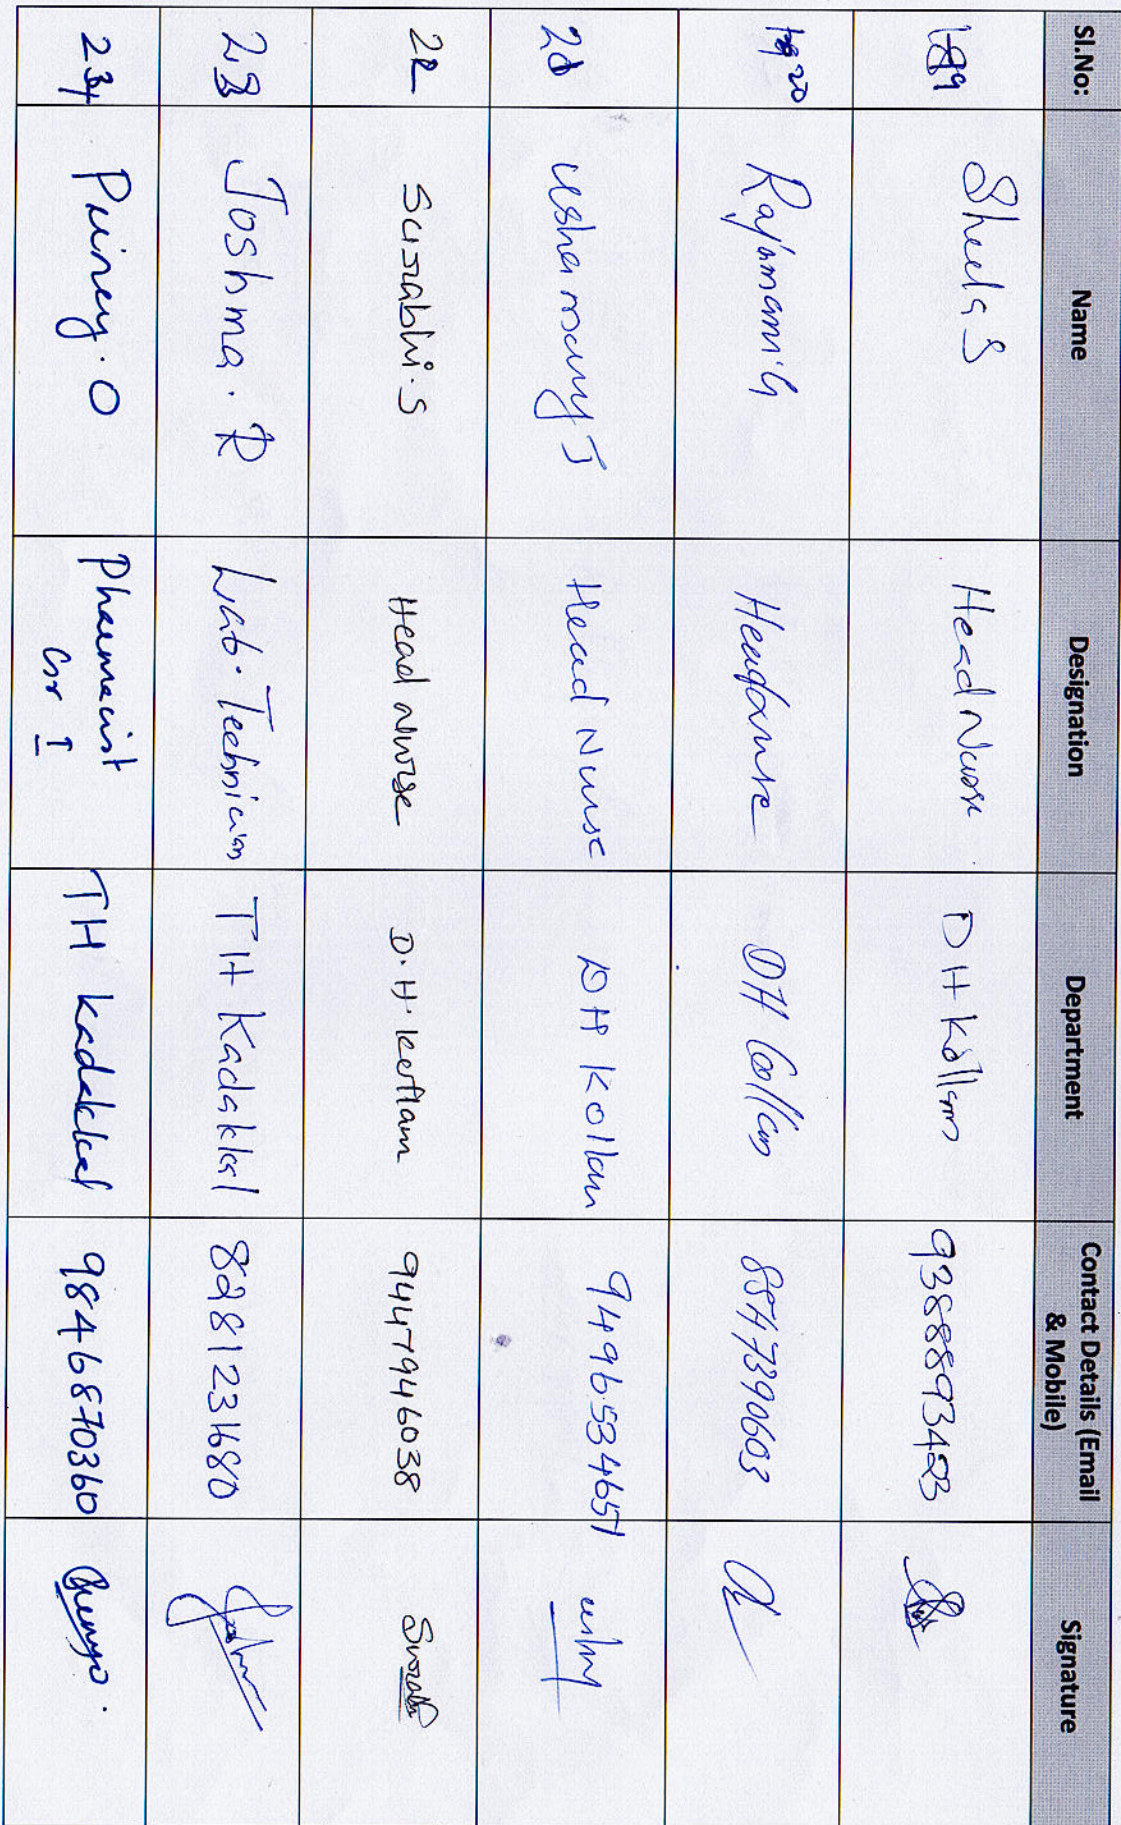 Sl.No: Name Designation Department Contact Details (Email & Mobile) Signature
19 Sheela S Head Nurse DH Kollam 9388893423
20 Rajamani G Headnurse DH Collam 8547390603
21 Usha mary J Head Nurse DH Kollam 9496534651
22 Surabhi.S Head nurse D.H. Kollam 9447946038
23 Joshma.R Lab.Technician TH Kadakkal 8281231680
24 Princy.O Pharmacist Gr I TH Kadakkal 9846870360